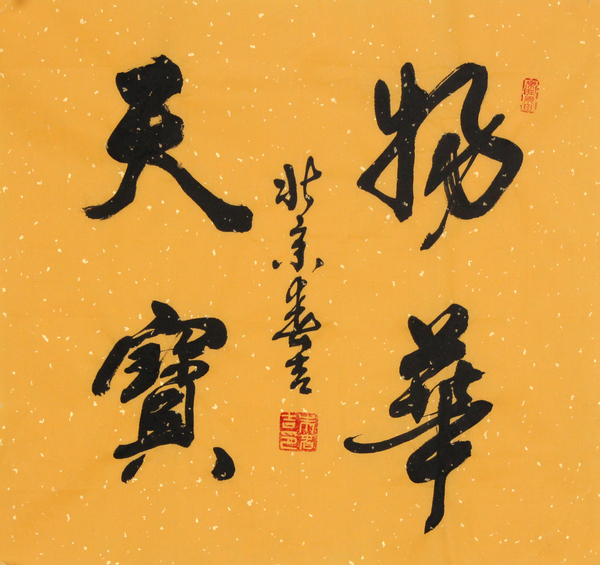 物華
天寶
北京吉